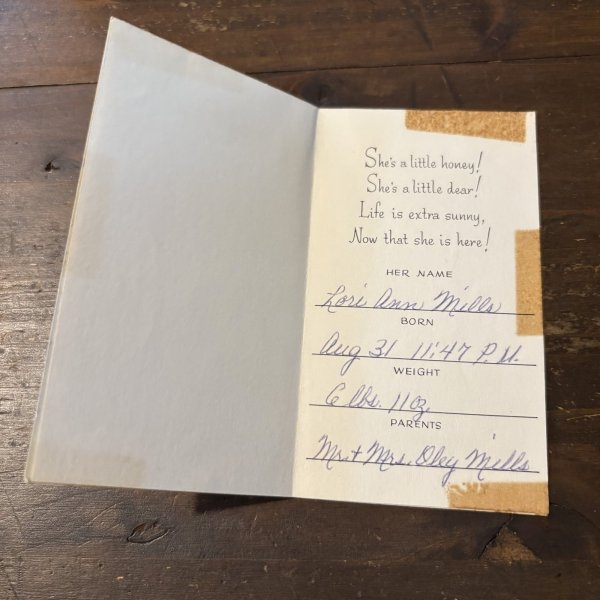 She's a little honey!
She's a little dear!
Life is extra sunny,
Now that she is here!
HER NAME
Lori Ann Mills
BORN
Aug 31 11:47 P.M.
WEIGHT
6 lbs. 11 oz.
PARENTS
Mr. + Mrs. Oley Mills